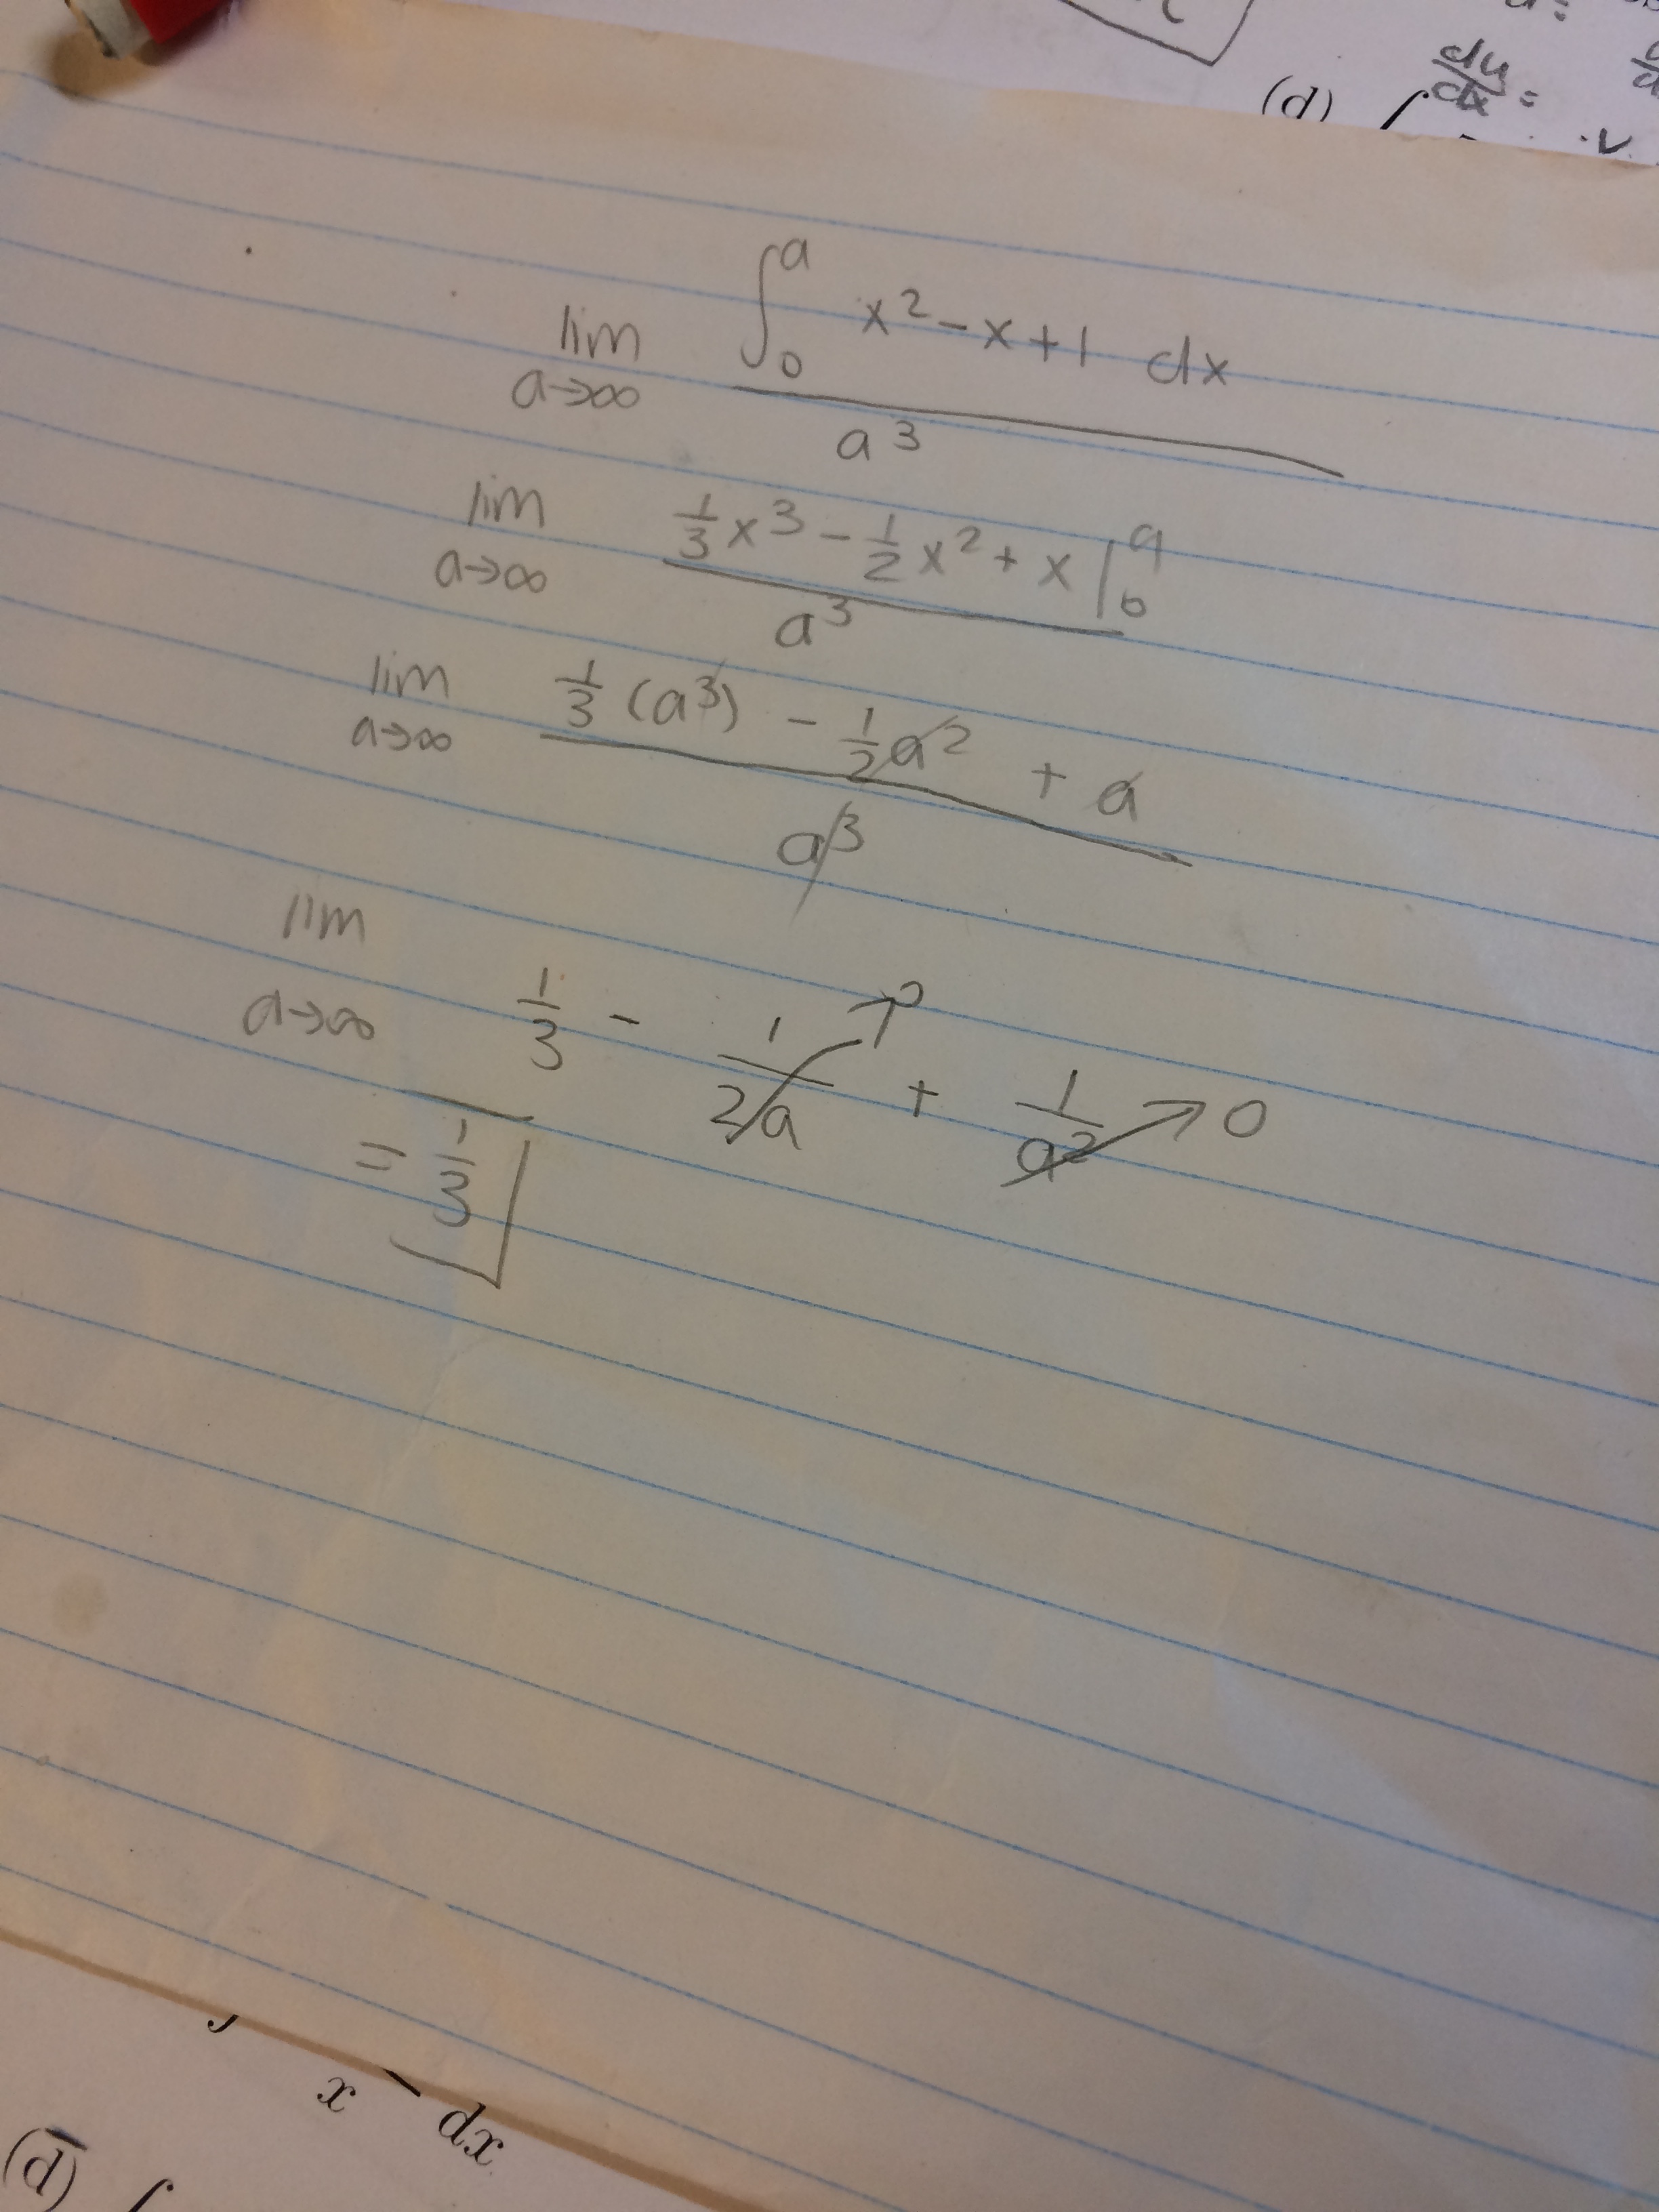 (d) ∫ du/dx =
lim a→∞ ∫₀ᵃ x² - x + 1 dx / a³
lim a→∞ 1/3 x³ - 1/2 x² + x |₀ᵃ / a³
lim a→∞ 1/3 (a³) - 1/2 a² + a / a³
lim a→∞ 1/3 - 1/2a → 0 + 1/a² → 0
= 1/3
x dx
(d) ∫